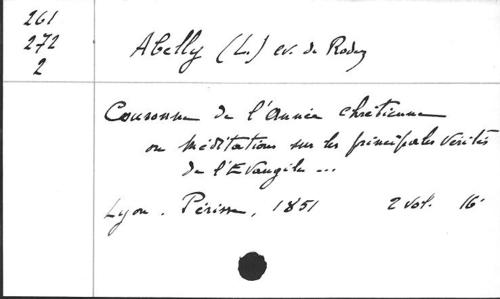 261
272
2
Abelly (L.) ev. de Rodez
Couronne de l'Année chrétienne
ou Méditations sur les principales vérités
de l'Evangile ...
Lyon. Périsse, 1851 2 vol. 16°